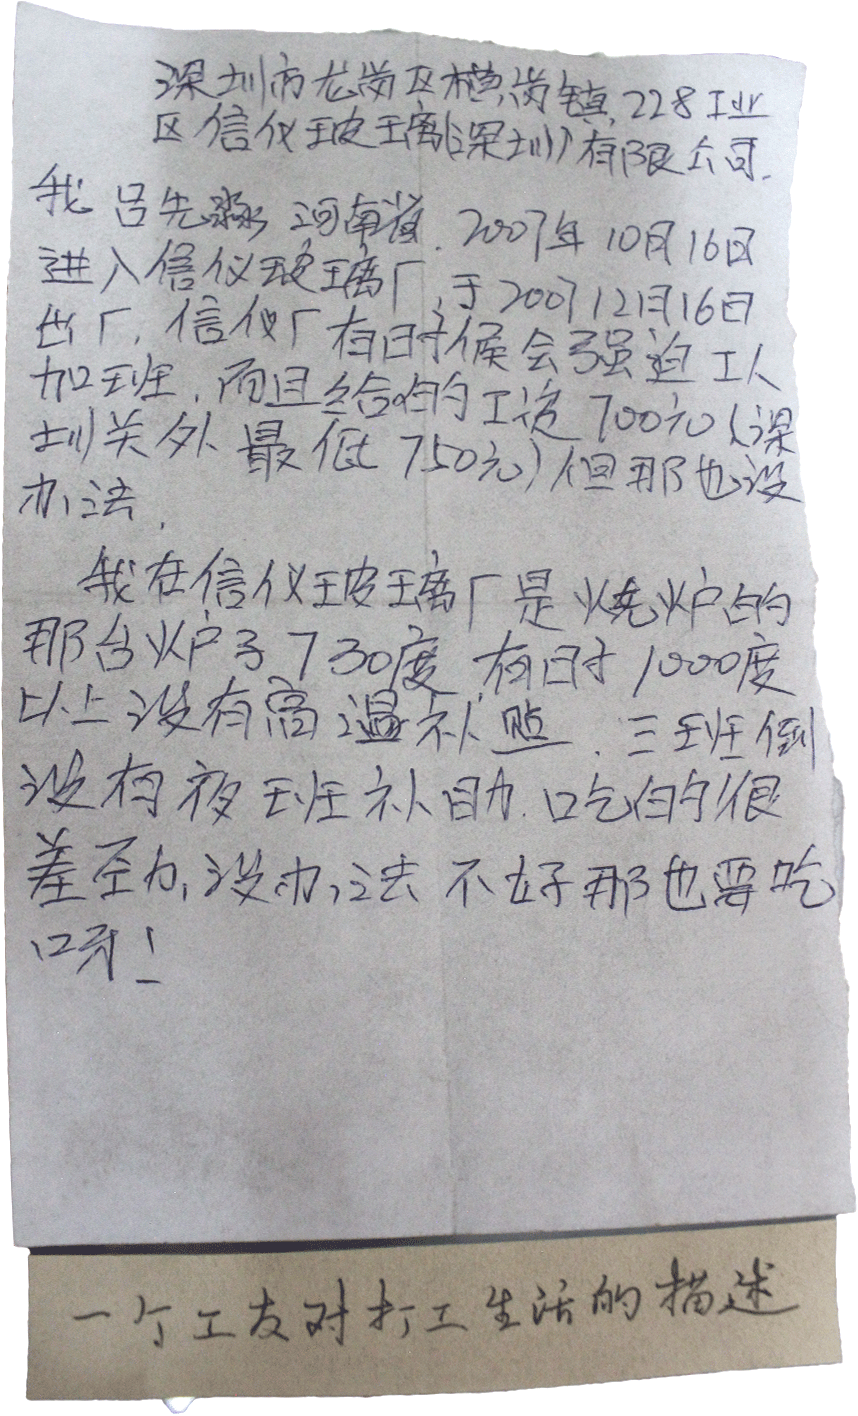 深圳市龙岗区横岗镇,228工业
区信仪玻璃(深圳)有限公司.
我 吕先淼 河南省.2007年10月16日
进入信仪玻璃厂,于200712月16日
出厂,信仪厂有时候会强迫工人
加班,而且给的工资700元(深
圳关外最低750元)但那也没
办法,
我在信仪玻璃厂是烧炉的
那台炉子730度,有时1000度
以上没有高温补贴.三班倒
没有夜班补助.吃的很
差至力,没办法 不好那也要吃
呀!
一个工友对打工生活的描述